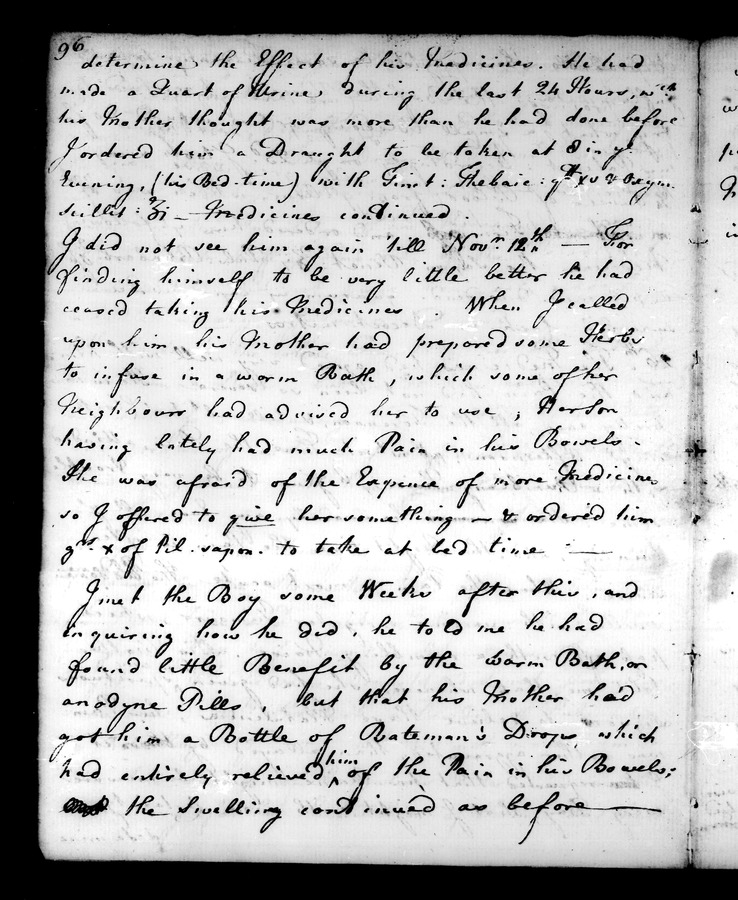 96
determine the Effect of his Medicines. He had
made a Quart of Urine during the last 24 Hours, wch
his Mother thought was more than he had done before
I ordered him a Draught to be taken at 8 in ye
Evening, (his Bed-time) with Tinct: Thebaic: gtt xv & Oxym.
Scillit: ʒi — Medicines continued.
I did not see him again 'till Novr 12th — For
finding himself to be very little better he had
ceased taking his Medicines. When I called
upon him his Mother had prepared some Herbs
to infuse in a warm Bath, which some of her
Neighbours had advised her to use; Her Son
having lately had much Pain in his Bowels.
She was afraid of the Expence of more Medicines
so I offered to give her something — & ordered him
grs x of Pil. sapon. to take at bed time —
I met the Boy some Weeks after this, and
inquiring how he did, he told me he had
found little Benefit by the warm Bath, or
anodyne Pills, but that his Mother had
got him a Bottle of Bateman's Drops, which
had entirely relieved him of the Pain in his Bowels;
the Swelling continued as before —